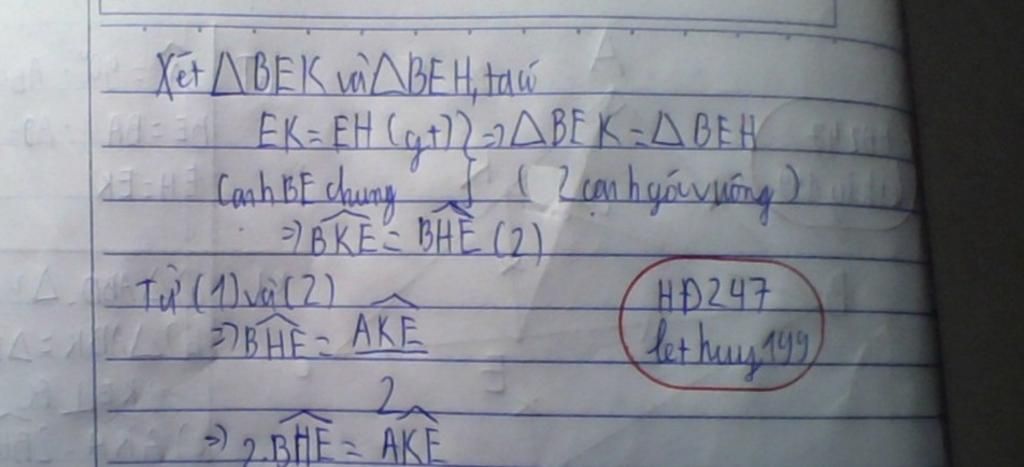 Xét △BEK và △BEH, ta có
EK = EH (gt) } => △BEK = △BEH
Cạnh BE chung } ( 2 cạnh góc vuông )
=> BKE = BHE (2)
Từ (1) và (2)
=> BHE = AKE
2
=> 2.BHE = AKE
HĐ247
lethuy199